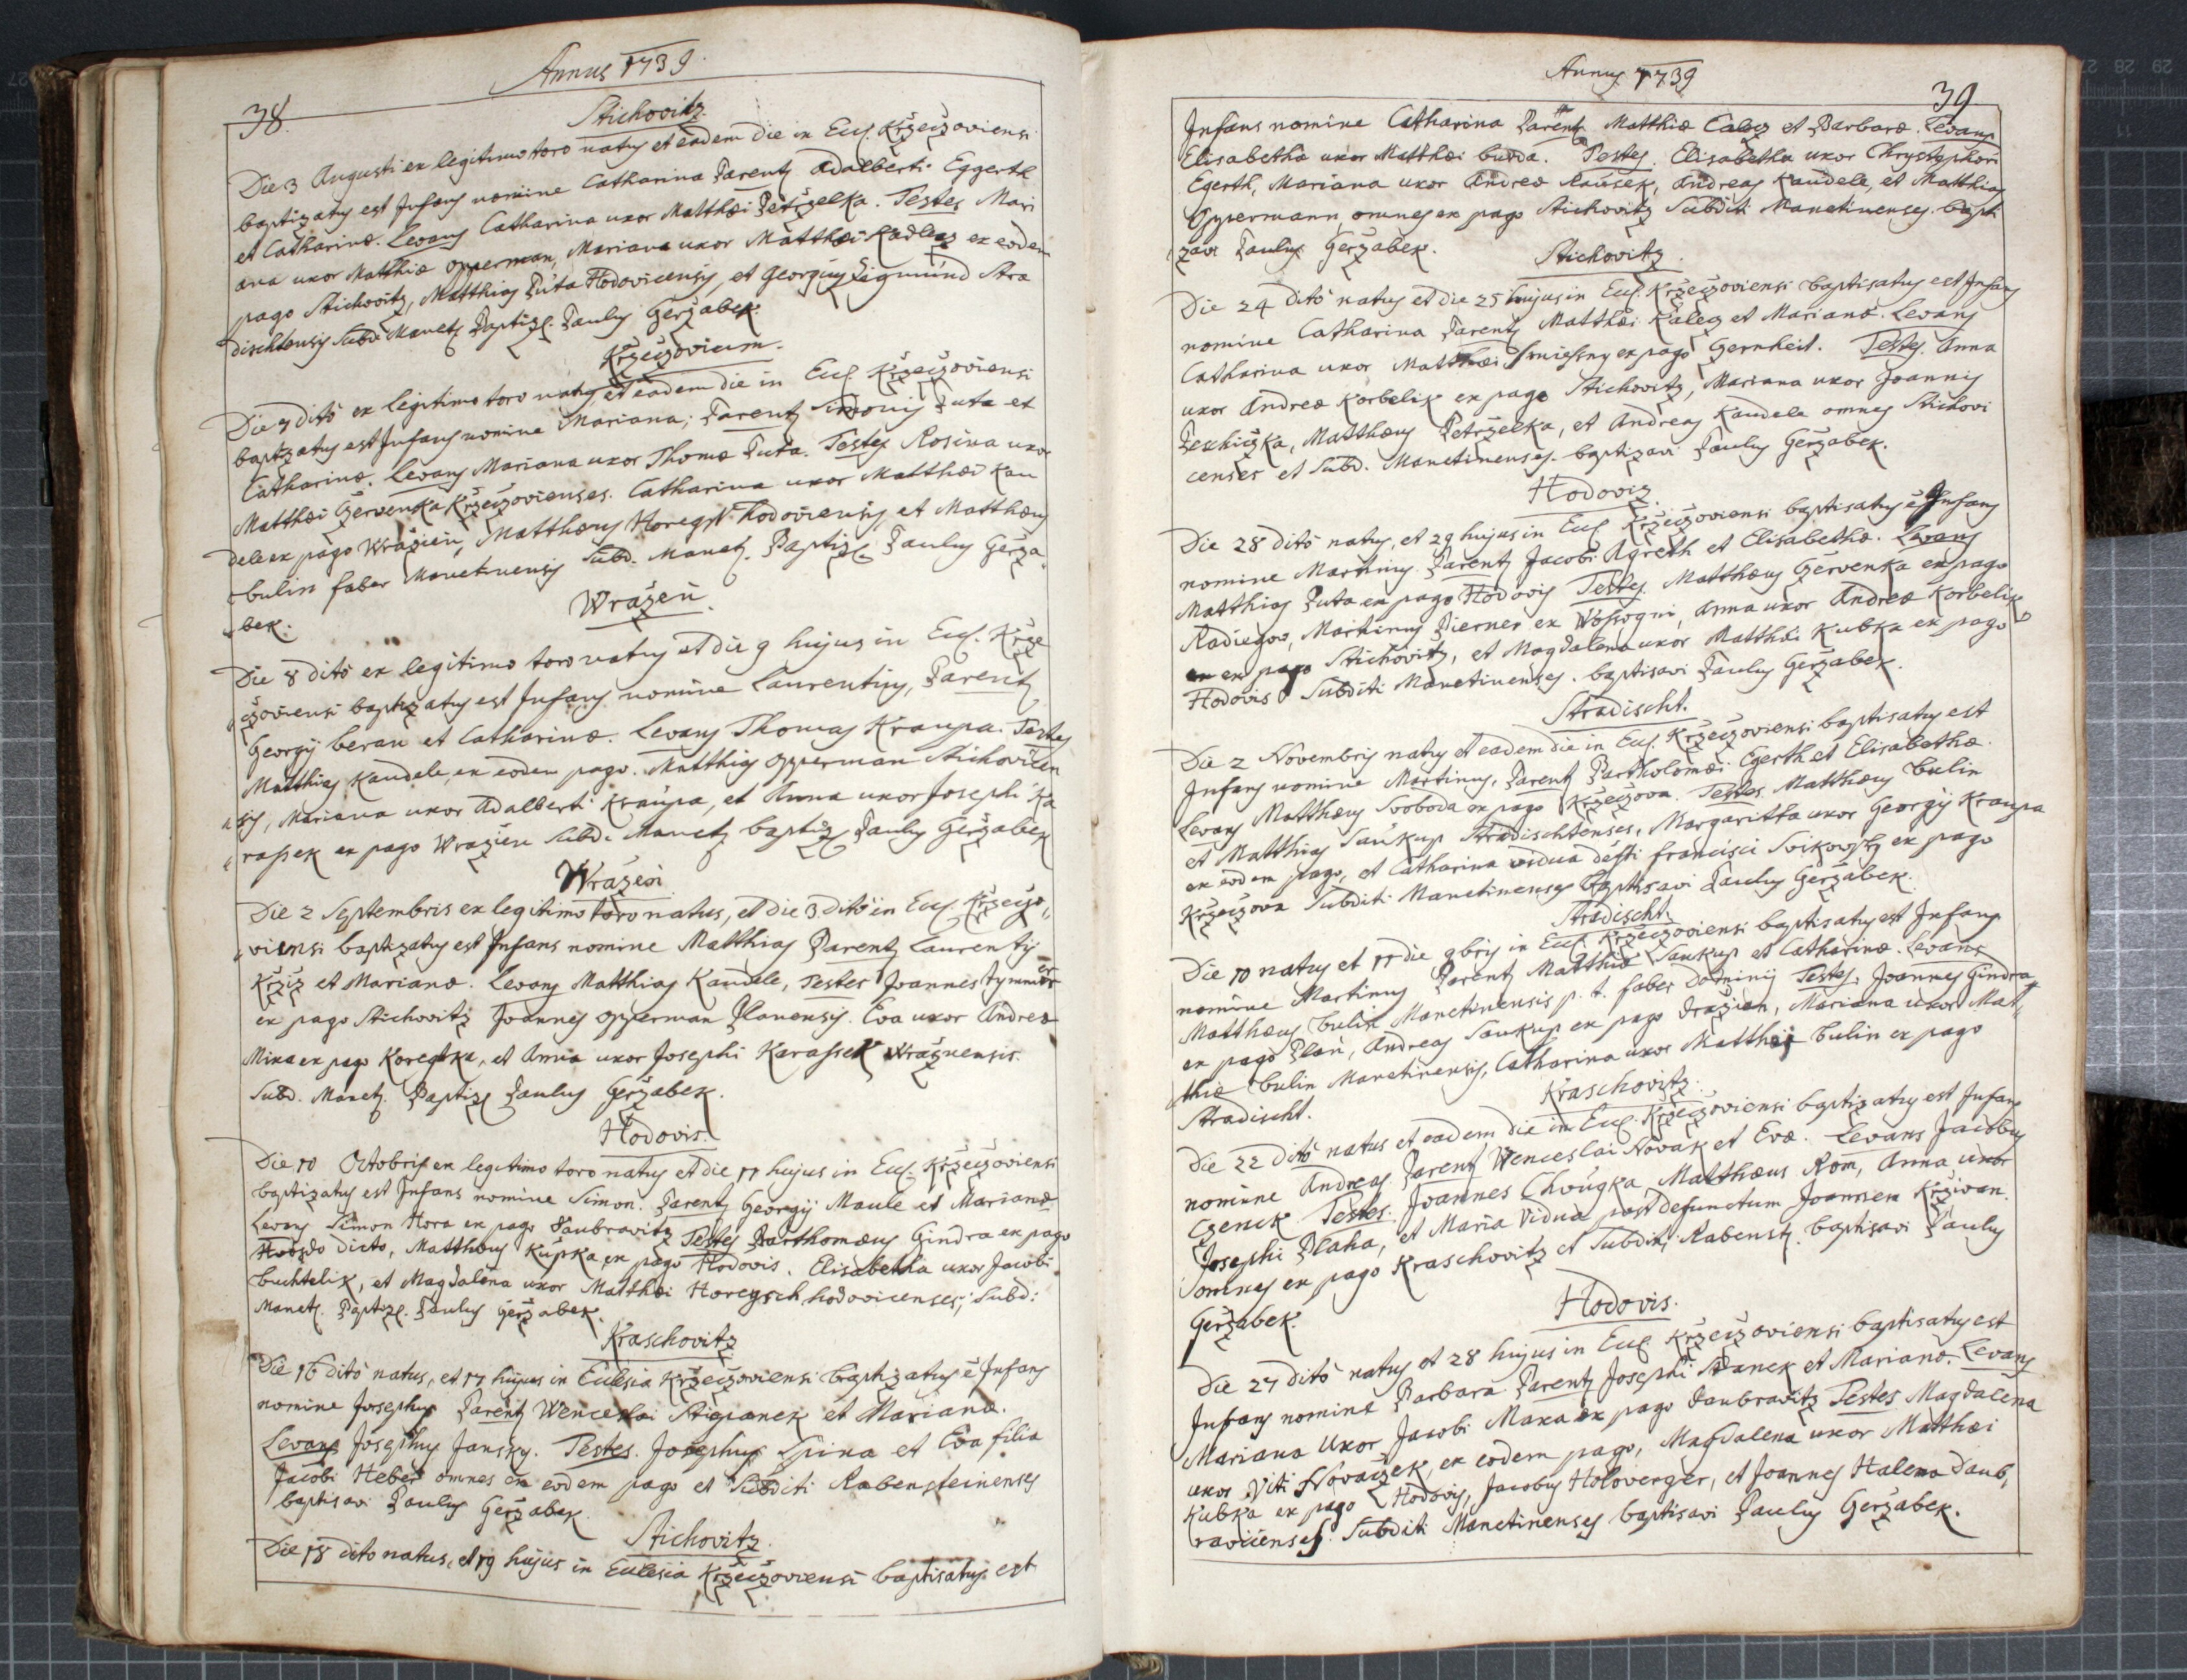 Annus 1739.
38.
Stichovitz.
Die 3 Augusti ex legitimo toro natus et eadem die in Eccl. Krzeczoviensi
baptizatus est Infans nomine Catharina Parentz Adalberti Eggerth
et Catharinæ. Levans Catharina uxor Matthæi Petrzelka. Testes Mari
ana uxor Matthiæ Opperman, Mariana uxor Matthæi Kadlecz ex eodem
pago Stichovitz, Matthias Puta Hodovicensis, et Georgius Zigmund Stra
dischtensis Subd. Manetz Baptiz. Paulus Gerzabek.
Krzeczovium.
Die 7 ditò ex legitimo toro natus et eadem die in Eccl. Krzeczoviensi
baptizatus est Infans nomine Mariana; Parentz Simonis Puta et
Catharinæ. Levans Mariana uxor Thomæ Puta. Testes Rosina uxor
Matthæi Czervenka Krzeczovienses. Catharina uxor Matthæi Kan
dele ex pago Wrazien, Matthæus Horegst Hodoviensis, et Matthæus
bulin faber Manetinensis Subd. Manetz. Baptiz. Paulus Gerza
bek.
Wrazen.
Die 8 ditò ex legitimo toro natus et die 9 hujus in Eccl. Krze
czoviensi baptizatus est Infans nomine Laurentius, Parentz
Georgij beran et Catharinæ. Levans Thomas Kraupa. Testes
Matthias Kandele ex eodem pago. Matthias Opperman Stichovicen
sis, Mariana uxor Adalberti Kraupa, et Anna uxor Joseph Ka
rassek ex pago Wrazien Subd. Manetz baptiz Paulus Gerzabek
Wrazen
Die 2 Septembris ex legitimo toro natus, et die 3 ditò in Eccl. Krzeczo
viensi baptizatus est Infans nomine Matthias Parentz Laurentij
Krziz et Marianæ. Levans Matthias Kandele, Testes Joannes Tymmer
ex pago Stichovitz Joannes Opperman Planensis. Eva uxor Andreæ
Mixa ex pago Koregtka, et Anna uxor Josephi Karassek Wraznensis.
Subd. Manetz. Baptiz Paulus Gerzabek.
Hodovis.
Die 10 Octobris ex legitimo toro natus et die 11 hujus in Eccl. Krzeczoviensi
baptizatus est Infans nomine Simon. Parentz Georgij Maule et Marianæ
Levans Simon Hora ex pago Daubravitz Testes Barthomæus Gindra ex pago
dicto, Matthæus Kupka ex pago Hodovis. Elisabetha uxor Jacobi
buchtelik, et Magdalena uxor Matthæi Horegsch hodovicenses; Subd:
Manetz. Baptiz. Paulus Gerzabek.
Kraschovitz
Die 16 ditò natus, et 17 hujus in Ecclesia Krzeczoviensi baptizatus ẽ Infans
nomine Josephus Parentz Wenceslai Stiepanek et Marianæ.
Levans Josephus Jansky. Testes. Josephus Spina et Eva filia
Jacobi Heber omnes ex eodem pago et Subditi Rabensteinenses
baptisavi Paulus Gerzabek.
Stichovitz.
Die 18 dito natus, et 19 hujus in Ecclesia Krzeczoviensi baptisatus est
Annus 1739
39
Infans nomine Catharina Parentz Matthiæ Calez et Barbaræ. Levans
Elisabetha uxor Matthæi burda. Testes. Elisabetha uxor Chrystophori
Egerth, Mariana uxor Andreæ Rausek, Andreas Kandele, et Matthias
Oppermann omnes ex pago Stichovitz Subditi Manetinenses. bapti
zavi Paulus Gerzabek.
Stichovitz.
Die 24 ditò natus et die 25 hujus in Eccl. Krzeczoviensi baptisatus est Infans
nomine Catharina Parentz Matthæi Kalez et Marianæ. Levans
Catharina uxor Matthæi Smiessny ex pago Gernheit. Testes. Anna
uxor Andreæ Korbelik ex pago Stichovitz, Mariana uxor Joannis
Zeschiczka, Matthæus Petrzelka, et Andreas Kandele omnes Stichovi
censes et Subd. Manetinenses. baptizavi Paulus Gerzabek.
Hodoviz.
Die 28 ditò natus, et 29 hujus in Eccl. Krzeczoviensi baptisatus ẽ Infans
nomine Martinus Parentz Jacobi Agreth et Elisabethæ. Levans
Matthias Puta ex pago Hodovis Testes. Matthæus Czervenka ex pago
Radiegow, Martinus Pierner ex Wossogni, Anna uxor Andreæ Korbelik
ex pago Stichovitz, et Magdalena uxor Matthæi Kubka ex pago
Hodovis Subditi Manetinenses. baptisavi Paulus Gerzabek.
Stradischt.
Die 2 Novembris natus et eadem die in Eccl. Krzeczoviensi baptisatus est
Infans nomine Martinus. Parentz Bartholomæi Egerth et Elisabethæ.
Levans Matthæus Svoboda ex pago Krzeczova. Testes. Matthæus bulin
et Matthias Saukup Stradischtenses, Margaritta uxor Georgij Kraupa
ex eodem pago, et Catharina vidua defti francisci Svikowsky ex pago
Krzeczova Subditi Manetinenses Baptisavi Paulus Gerzabek.
Stradischt.
Die 10 natus et 11 die 9bris in Eccl. Krzeczoviensi baptisatus est Infans
nomine Martinus Parentz Matthiæ Saukup et Catharinæ. Levans
Matthæus bulin Manetinensis p. t. faber Dominij Testes. Joannes Gindra
ex pago Plan, Andreas Saukup ex pago Drazian, Mariana uxor Mat
thiæ bulin Manetinensis, Catharina uxor Matthæi bulin ex pago
Stradischt.
Kraschovitz.
Die 22 ditò natus et eadem die in Eccl. Krzeczoviensi baptizatus est Infans
nomine Andreas Parentz Wenceslai Novak et Evæ. Levans Jacobus
Czenek Testes. Joannes Chvugka, Matthæus Rom, Anna uxor
Josephi Plaha, et Maria Vidua post defunctum Joannem Krzivan.
omnes ex pago Kraschovitz et Subditi Rabenstz. baptisavi Paulus
Gerzabek.
Hodovis.
Die 27 ditò natus et 28 hujus in Eccl. Krzeczoviensi baptisatus est
Infans nomine Barbara Parentz Josephi Stanek et Marianæ. Levans
Mariana Uxor Jacobi Maxa ex pago Daubravitz Testes Magdalena
uxor Viti Novaczek ex eodem pago, Magdalena uxor Matthæi
Kubka ex pago Hodovis, Jacobus Holoverger, et Joannes Halema Daub,
ravicenses. Subditi Manetinenses baptisavi Paulus Gerzabek.